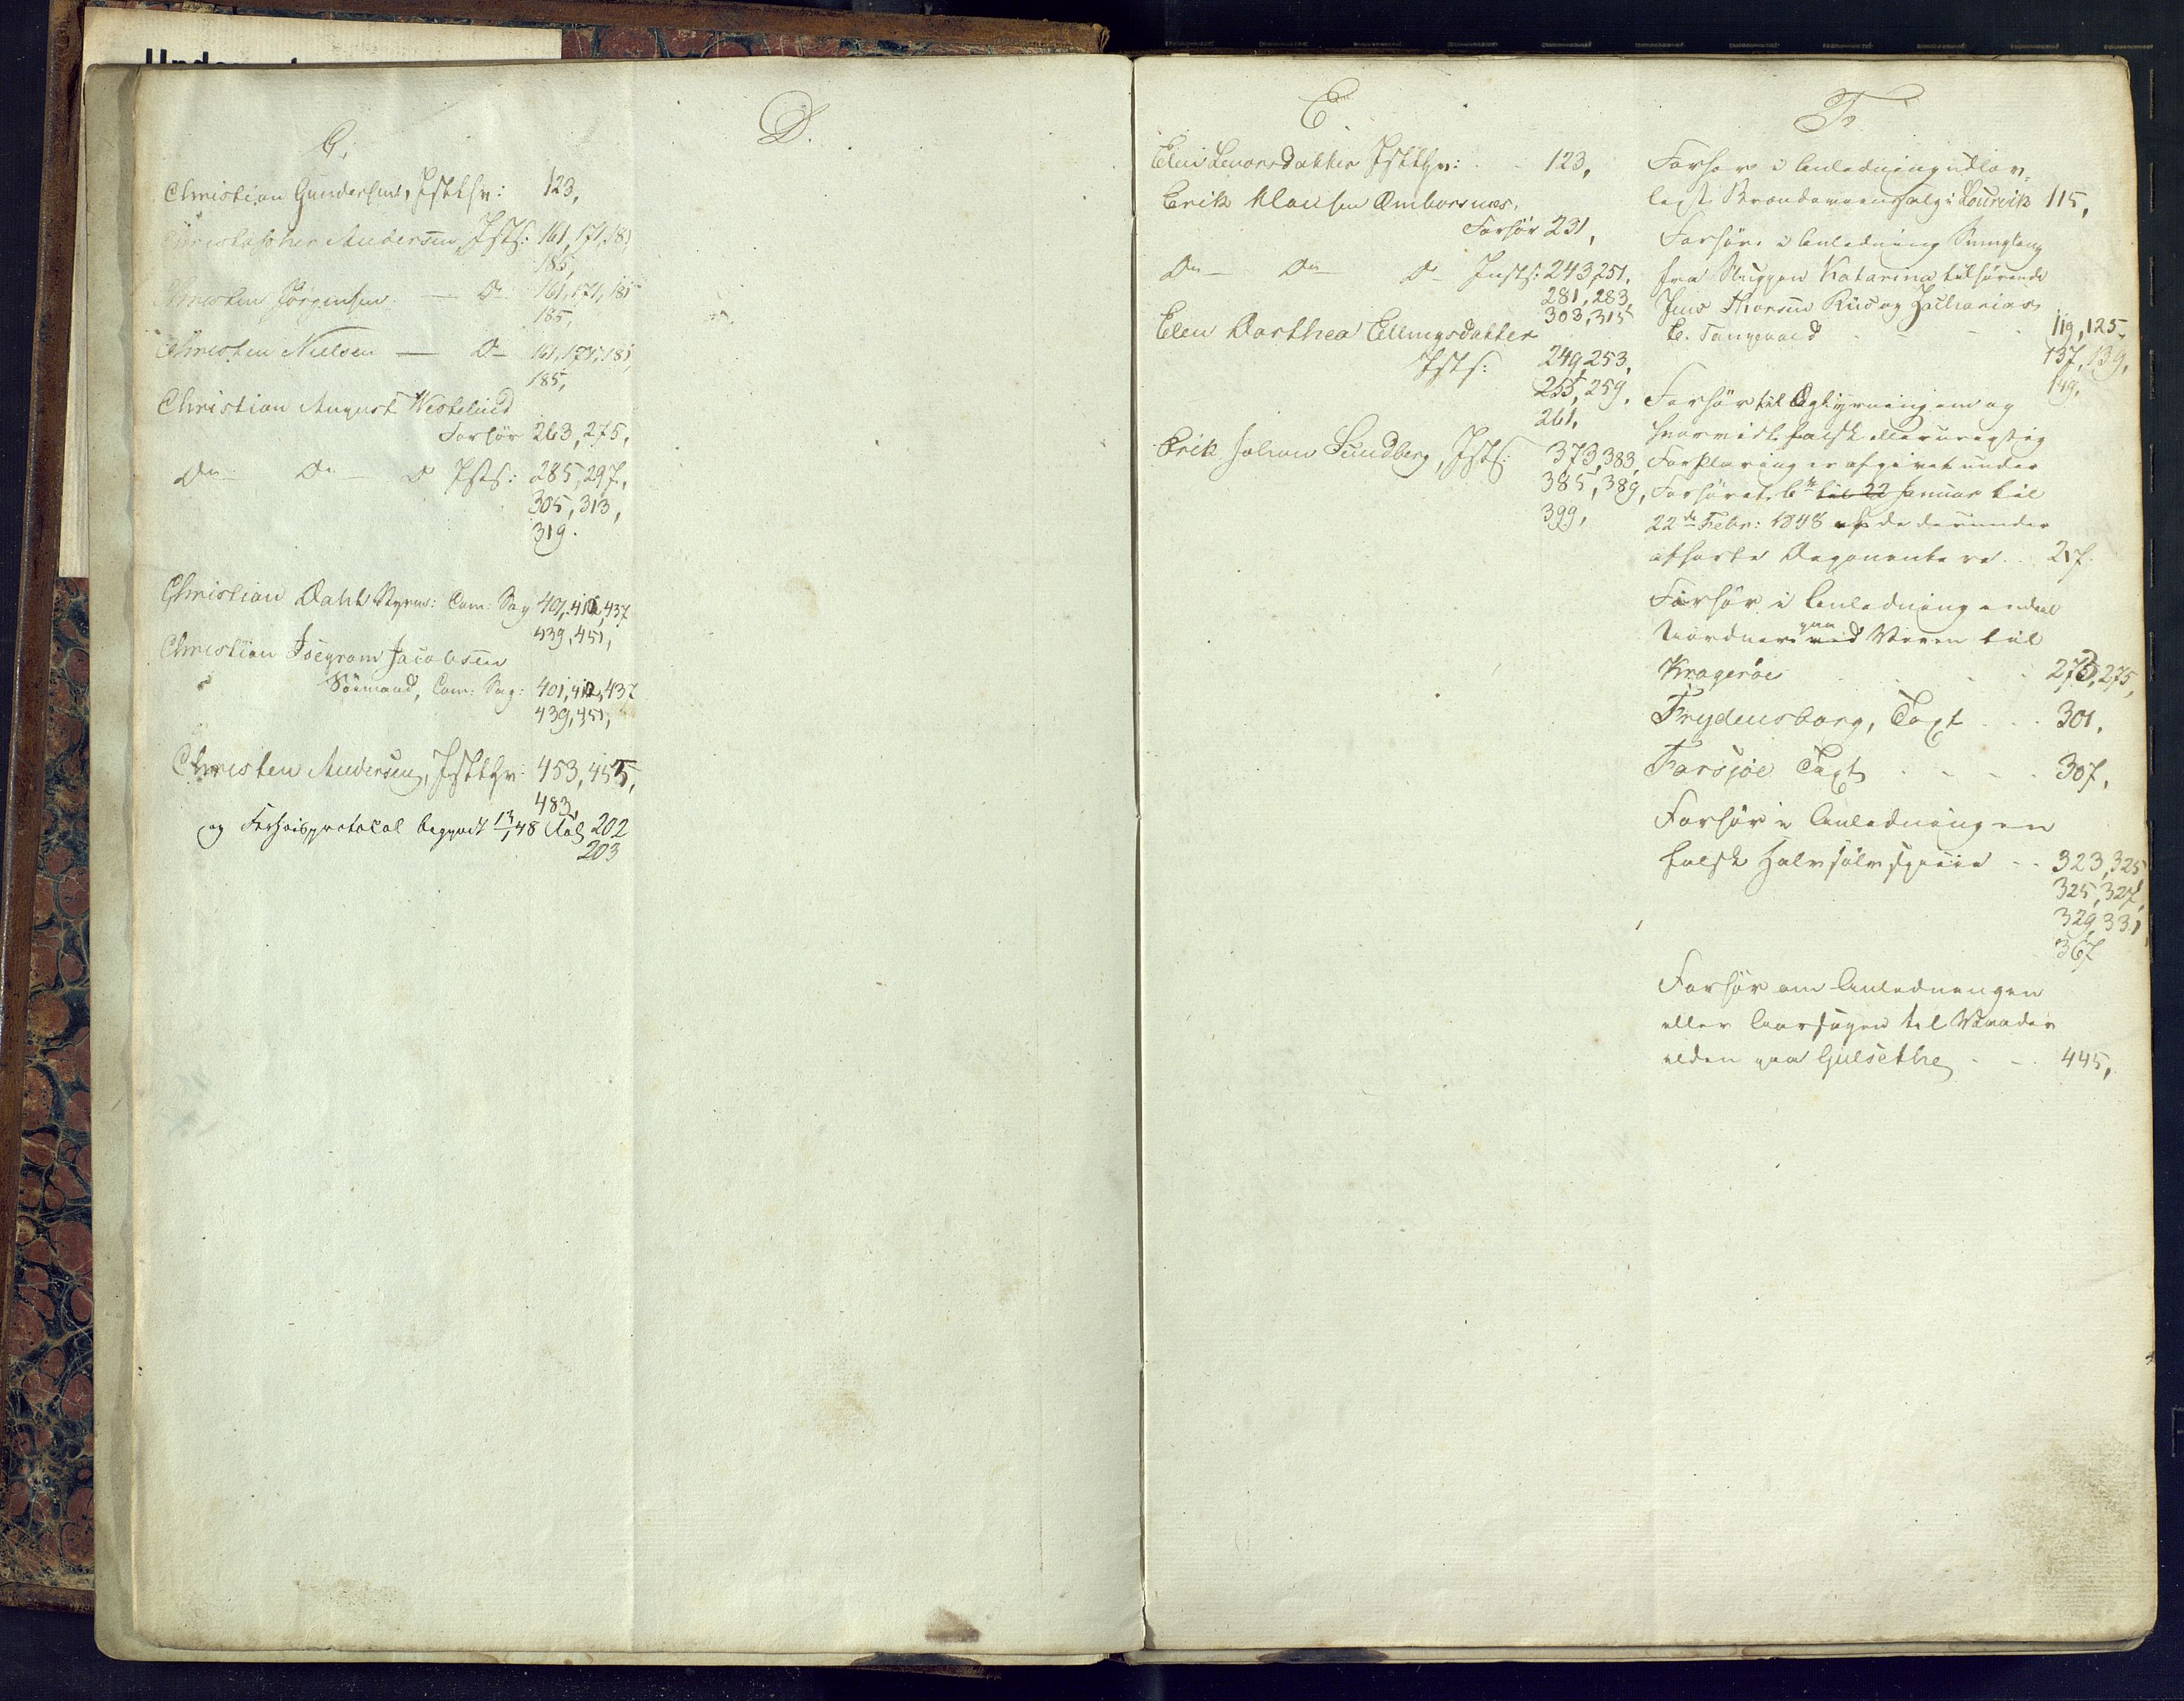 C.
Christian Gundersen, Jsttshr: 123,
Christopher Andersen, Jsts: 161, 171, 181
185,
Christen Jörgensen — Do 161, 171, 181
185,
Christen Nielsen — Do 161, 171, 181,
185,
Christian August Westelind
Forhör 263, 275,
Do — Do — Do Jsts: 285, 297,
305, 313,
319.
Christian Dahl Com: Sag 401, 412, 437
439, 451,
Christian Jacobsen
Sömand, Com: Sag: 401, 412, 437
439, 451,
Christen Andersen, Jsttshr: 453, 455,
483,
og Forhörsprotocol begyndt 13/1 48 Fol 202
203
D.
E.
Elen Jsttshr: 123,
Erik Clausen Omborsnæs,
Forhör 231,
Do — Do — Do Justs: 243, 251,
281, 283,
303, 315
Elen Dorthea Ellingsdatter
Jsts: 249, 253,
255, 259,
261,
Erik Johan Sundberg, Jsts: 373, 383,
385, 389,
399,
F.
Forhör i Anledning udlov-
ligt Brændeviinssalg i Lourvik 115,
Forhör i Anledning
fra Sluppen Katarina tilhørende
Jens Thorsen Riis og Zacharias
E. Tangvald 119, 125,
137, 139,
149,
Forhör til Oplysning om og
hvorvidt falsk eller urigtig
Forklaring er afgivet under
Forhöret 6te til 22 Januar til
22de Febr: 1848 af de derunder
afhørte Deponentere 217.
Forhör i Anledning endeel
Uordner paa ved Veien til
Kragerøe 273, 275,
Frydensborg, Taxt 301,
Farsjöe Taxt 307,
Forhör i Anledning en
falsk Halvsölvspecie 323, 325
325, 327,
329, 331,
367
Forhör om Anledningen
eller Aarsagen til Vaade-
ilden paa Gulsethe 445,